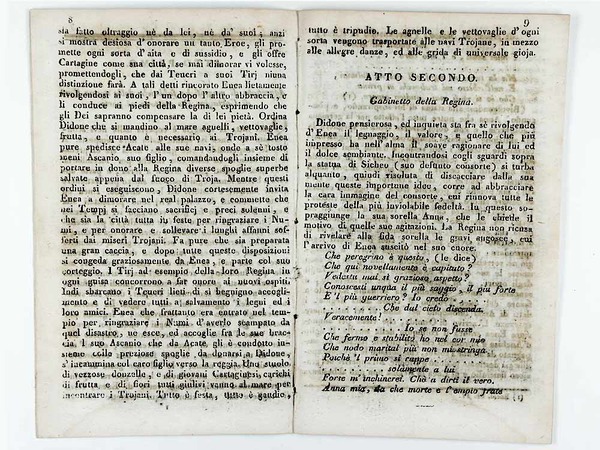 8
sia fatto oltraggio nè da lei, nè da' suoi; anzi
si mostra desiosa d'onorare un tanto Eroe, gli pro-
mette ogni sorta d'aita e di sussidio, e gli offre
Cartagine come sua città, se mai dimorar vi volesse,
promettendogli, che dai Teucri a suoi Tirj niuna
distinzione farà. A tali detti rincorato Enea lietamente
rivolgendosi ai suoi l'un dopo l'altro abbraccia, e
li conduce ai piedi della Regina, esprimendo che
gli Dei sapranno compensare la di lei pietà. Ordina
Didone che si mandino al mare agnelli, vettovaglie,
frutta, e quanto è necessario ai Trojani. Enea
pure spedisce Acate alle sue navi, onde a sè tosto
meni Ascanio suo figlio, comandandogli insieme di
portare in dono alla Regina diverse spoglie superbe
salvate appena dal fuoco di Troja. Mentre questi
ordini si eseguiscono, Didone cortesemente invita
Enea a dimorare nel real palazzo, e commette che
nei Tempj si facciano sacrificj e preci solenni, e
che sia la città tutta in feste per ringraziare i Nu-
mi, e per onorare e sollevare i lunghi affanni sof-
ferti dai miseri Trojani. Fa pure che sia preparata
una gran caccia, e dopo tutte queste disposizioni
si congeda graziosamente da Enea, e parte col suo
corteggio. I Tirj ad esempio della loro Regina in
ogni guisa concorrono a far onore ai nuovi ospiti.
Indi sbarcano i Teucri lieti di sì benigno accogli-
mento e di vedere tutti a salvamento i legni ed i
loro amici. Enea che frattanto era entrato nel tem-
pio per ringraziare i Numi d'averlo scampato da
quel disastro, ne esce, ed accoglie fra le sue brac-
cia il suo Ascanio che da Acate gli è condotto in-
sieme colle preziose spoglie da donarsi a Didone,
s'incammina col caro figlio verso la reggia. Uno stuolo
di vezzose donzelle, e di giovani Cartaginesi, carichi
di frutta e di fiori tutti giulivi vanno al mare per
incontrare i Trojani. Tutto è festa, tutto è gaudio,
9
tutto è tripudio. Le agnelle e le vettovaglie d'ogni
sorta vengono trasportate alle navi Trojane, in mezzo
alle allegre danze, ed alle grida di universale gioja.
ATTO SECONDO.
Gabinetto della Regina.
Didone pensierosa, ed inquieta sta fra sè rivolgendo
d'Enea il legnaggio, il valore, e quello che più
impresso ha nell'alma il soave ragionare di lui ed
il dolce sembiante. Incontrandosi cogli sguardi sopra
la statua di Sicheo (suo defunto consorte) si turba
alquanto, quindi risoluta di discacciare dalla sua
mente queste importune idee, corre ad abbracciare
la cara immagine del consorte, cui rinnova tutte le
proteste della più inviolabile fedeltà. In questo so-
praggiunge la sua sorella Anna, che le chiede il
motivo di quelle sue agitazioni. La Regina non ricusa
di rivelare alla fida sorella le gravi angosce, cui
l'arrivo di Enea suscitò nel suo cuore.
Che peregrino è questo, (le dice)
Che qui novellamente è capitato?
Vedestu mai sì grazioso aspetto?
Conoscesti unqua il più saggio, il più forte
E 'l più guerriero? Io credo . . . .
. . . . . . . Che dal cielo discenda.
Veracemente!
. . . . . . . . . . Io se non fusse
Che fermo e stabilito ho nel cor mio
Che nodo marital più non mi stringa
Poichè 'l primo si ruppe . . . .
. . . . . . . . solamente a lui
Forse m'inchinerei. Che a dirti il vero,
Anna mia, da che morte e l'empio frate